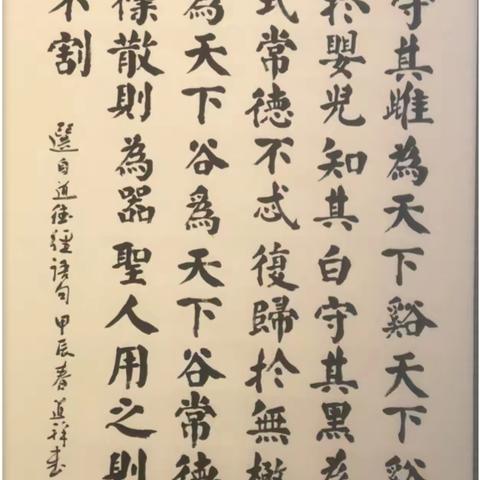 守其雌為天下谿天下谿
於嬰兒知其白守其黑為
式常德不忒復歸於無極
為天下谷爲天下谷常德
樸散則為器聖人用之則
不割
選自道德經語句甲辰春道祥書